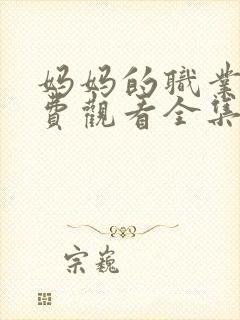 妈妈的職業
費觀看全集
宗巍